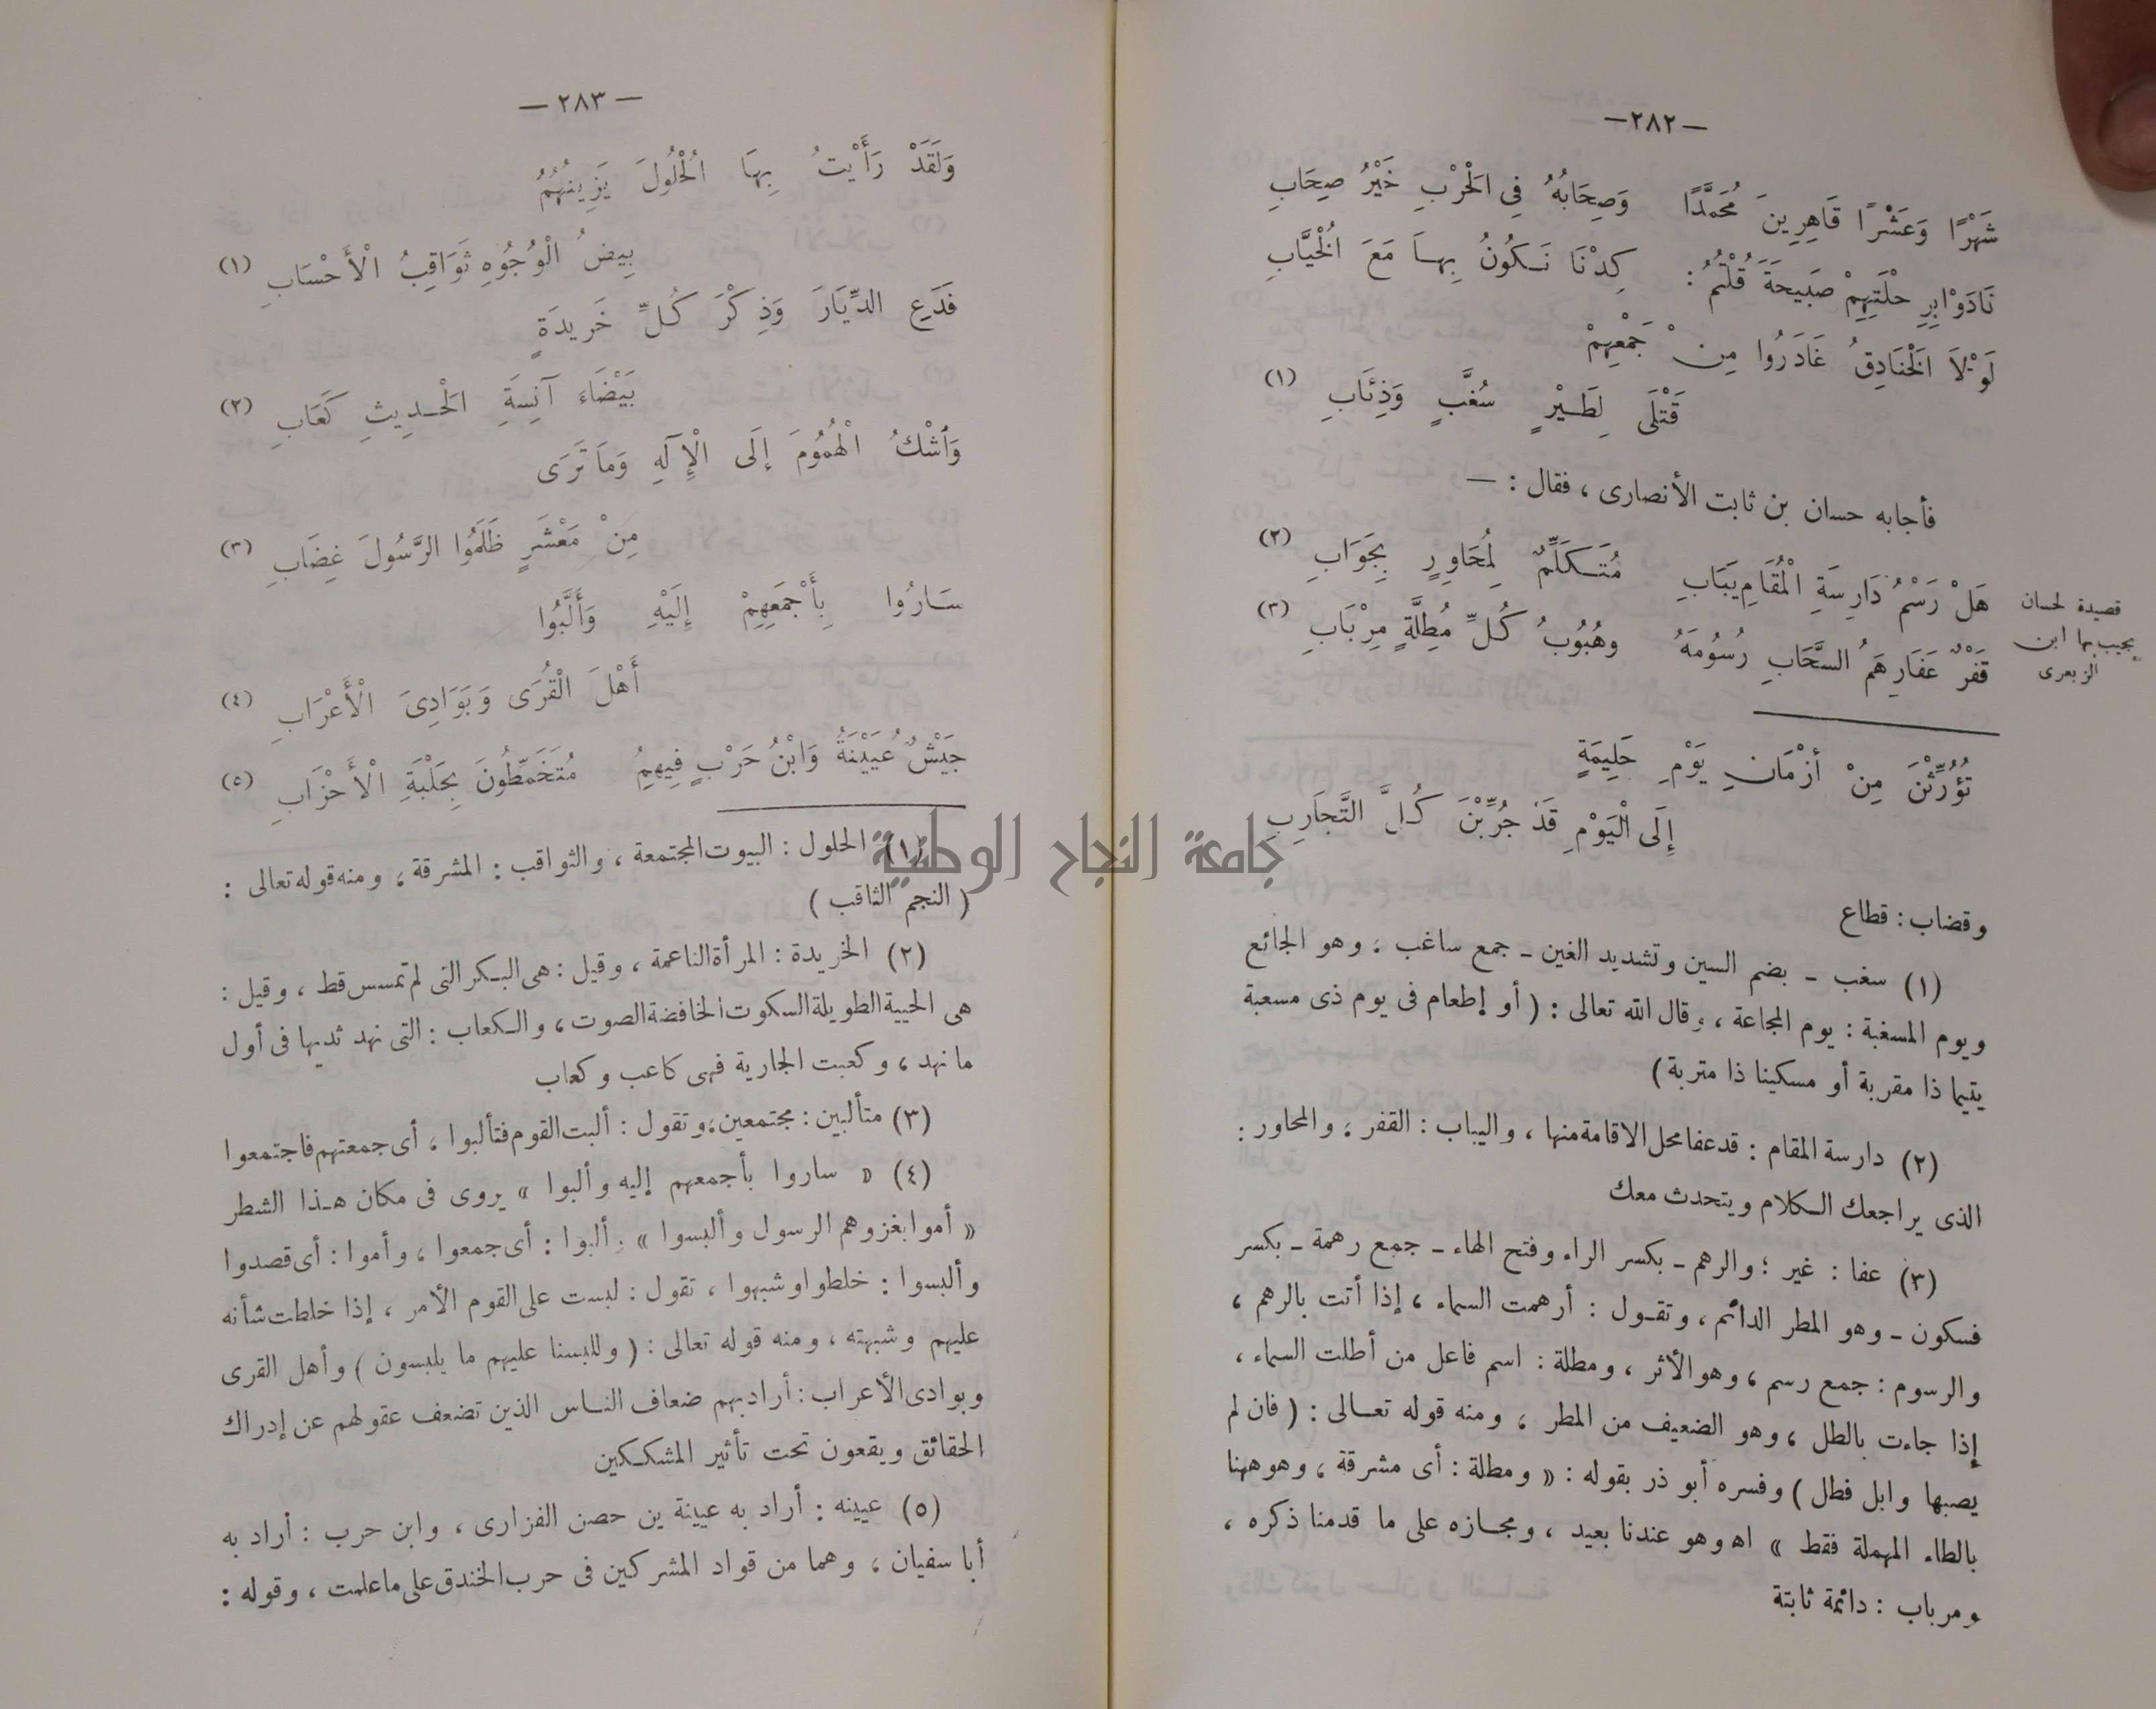 —٢٨٢—
شَهْرًا وَعَشْرًا قَاهِرِينَ مُحَمَّدًا وَصِحَابُهُ فِي الْحَرْبِ خَيْرُ صِحَابِ
نَادَوْا بِرِحْلَتِهِمْ صَبِيحَةَ قُلْتُمُ: كِدْنَا نَكُونُ بِهَا مَعَ الْخُيَّابِ
لَوْلَا الْخَنَادِقُ غَادَرُوا مِنْ جَمْعِهِمْ
قَتْلَى لِطَيْرٍ سُغَّبٍ وَذِئَابِ (١)
فأجابه حسان بن ثابت الأنصارى ، فقال : —
هَلْ رَسْمُ دَارِسَةِ الْمُقَامِ يَبَابِ مُتَكَلِّمٌ لِمُحَاوِرٍ بِجَوَابِ (٢)
قَفْرٌ عَفَا رِهَمُ السَّحَابِ رُسُومَهُ وهُبُوبُ كُلِّ مُطِلَّةٍ مِرْبَابِ (٣)
قصيدة لحسان
يجيب بها ابن
الزبعرى
تُوُرِّثْنَ مِنْ أزْمَانِ يَوْمِ حَلِيمَةٍ
إِلَى الْيَوْمِ قَدْ جُرِّبْنَ كُلَّ التَّجَارِبِ
وقضاب : قطاع
(١) سغب ـ بضم السين وتشديد الغين ـ جمع ساغب ، وهو الجائع
ويوم المسغبة : يوم المجاعة ، وقال الله تعالى : ( أو إطعام فى يوم ذى مسعبة
يتيما ذا مقربة أو مسكينا ذا متربة )
(٢) دارسة المقام : قد عفا محل الاقامة منها ، واليباب : القفر ، والمحاور :
الذى يراجعك الكلام ويتحدث معك
(٣) عفا : غير ؛ والرهم ـ بكسر الراء وفتح الهاء ـ جمع رهمة ـ بكسر
فسكون ـ وهو المطر الدائم ، وتقول : أرهمت السماء ، إذا أتت بالرهم ،
والرسوم : جمع رسم ، وهو الأثر ، ومطلة : اسم فاعل من أطلت السماء ،
إذا جاءت بالطل ، وهو الضعيف من المطر ، ومنه قوله تعالى : ( فان لم
يصبها وابل فطل ) وفسره أبو ذر بقوله : « ومطلة : أى مشرقة ، وهو ههنا
بالطاء المهملة فقط » اه وهو عندنا بعيد ، ومجازه على ما قدمنا ذكره ،
ومرباب : دائمة ثابتة
— ٢٨٣ —
وَلَقَدْ رَأَيْتُ بِهَا الْحُلُولَ يَزِينُهُمُ
بِيضُ الْوُجُوهِ ثَوَاقِبُ الْأَحْسَابِ (١)
فَدَعِ الدِّيَارَ وَذِكْرَ كُلِّ خَرِيدَةٍ
بَيْضَاءَ آنِسَةِ الْحَدِيثِ كَعَابِ (٢)
وَاشْكُ الْهُمُومَ إِلَى الْإِلَهِ وَمَا تَرَى
مِنْ مَعْشَرٍ ظَلَمُوا الرَّسُولَ غِضَابِ (٣)
سَارُوا بِأَجْمَعِهِمْ إِلَيْهِ وَأَلَّبُوا
أَهْلَ الْقُرَى وَبَوَادِىَ الْأَعْرَابِ (٤)
جَيْشُ عُيَيْنَةُ وَابْنُ حَرْبٍ فِيهِمُ مُتَخَمِّطُونَ بِحَلْبَةِ الْأَحْزَابِ (٥)
(١) الحلول : البيوت المجتمعة ، والثواقب : المشرقة ، ومنه قوله تعالى :
( النجم الثاقب )
(٢) الخريدة : المرأة الناعمة ، وقيل : هى البكر التى لم تمسس قط ، وقيل :
هى الحيية الطويلة السكوت الخافضة الصوت ، والكعاب : التى نهد ثديها فى أول
ما نهد ، وكعبت الجارية فهى كاعب وكعاب
(٣) متألبين : مجتمعين ، وتقول : ألبت القوم فتألبوا ، أى جمعتهم فاجتمعوا
(٤) « ساروا بأجمعهم إليه وألبوا » يروى فى مكان هذا الشطر
« أموا بغزوهم الرسول وألبسوا » وألبوا : أى جمعوا ، وأموا : أى قصدوا
وألبسوا : خلطوا وشبهوا ، تقول : لبست على القوم الأمر ، إذا خلطت شأنه
عليهم وشبهته ، ومنه قوله تعالى : ( وللبسنا عليهم ما يلبسون ) وأهل القرى
وبوادى الأعراب : أراد بهم ضعاف الناس الذين تضعف عقولهم عن إدراك
الحقائق ويقعون تحت تأثير المشككين
(٥) عيينه : أراد به عيينة بن حصن الفزارى ، وابن حرب : أراد به
أبا سفيان ، وهما من قواد المشركين فى حرب الخندق على ما علمت ، وقوله :
جامعة النجاح الوطنية